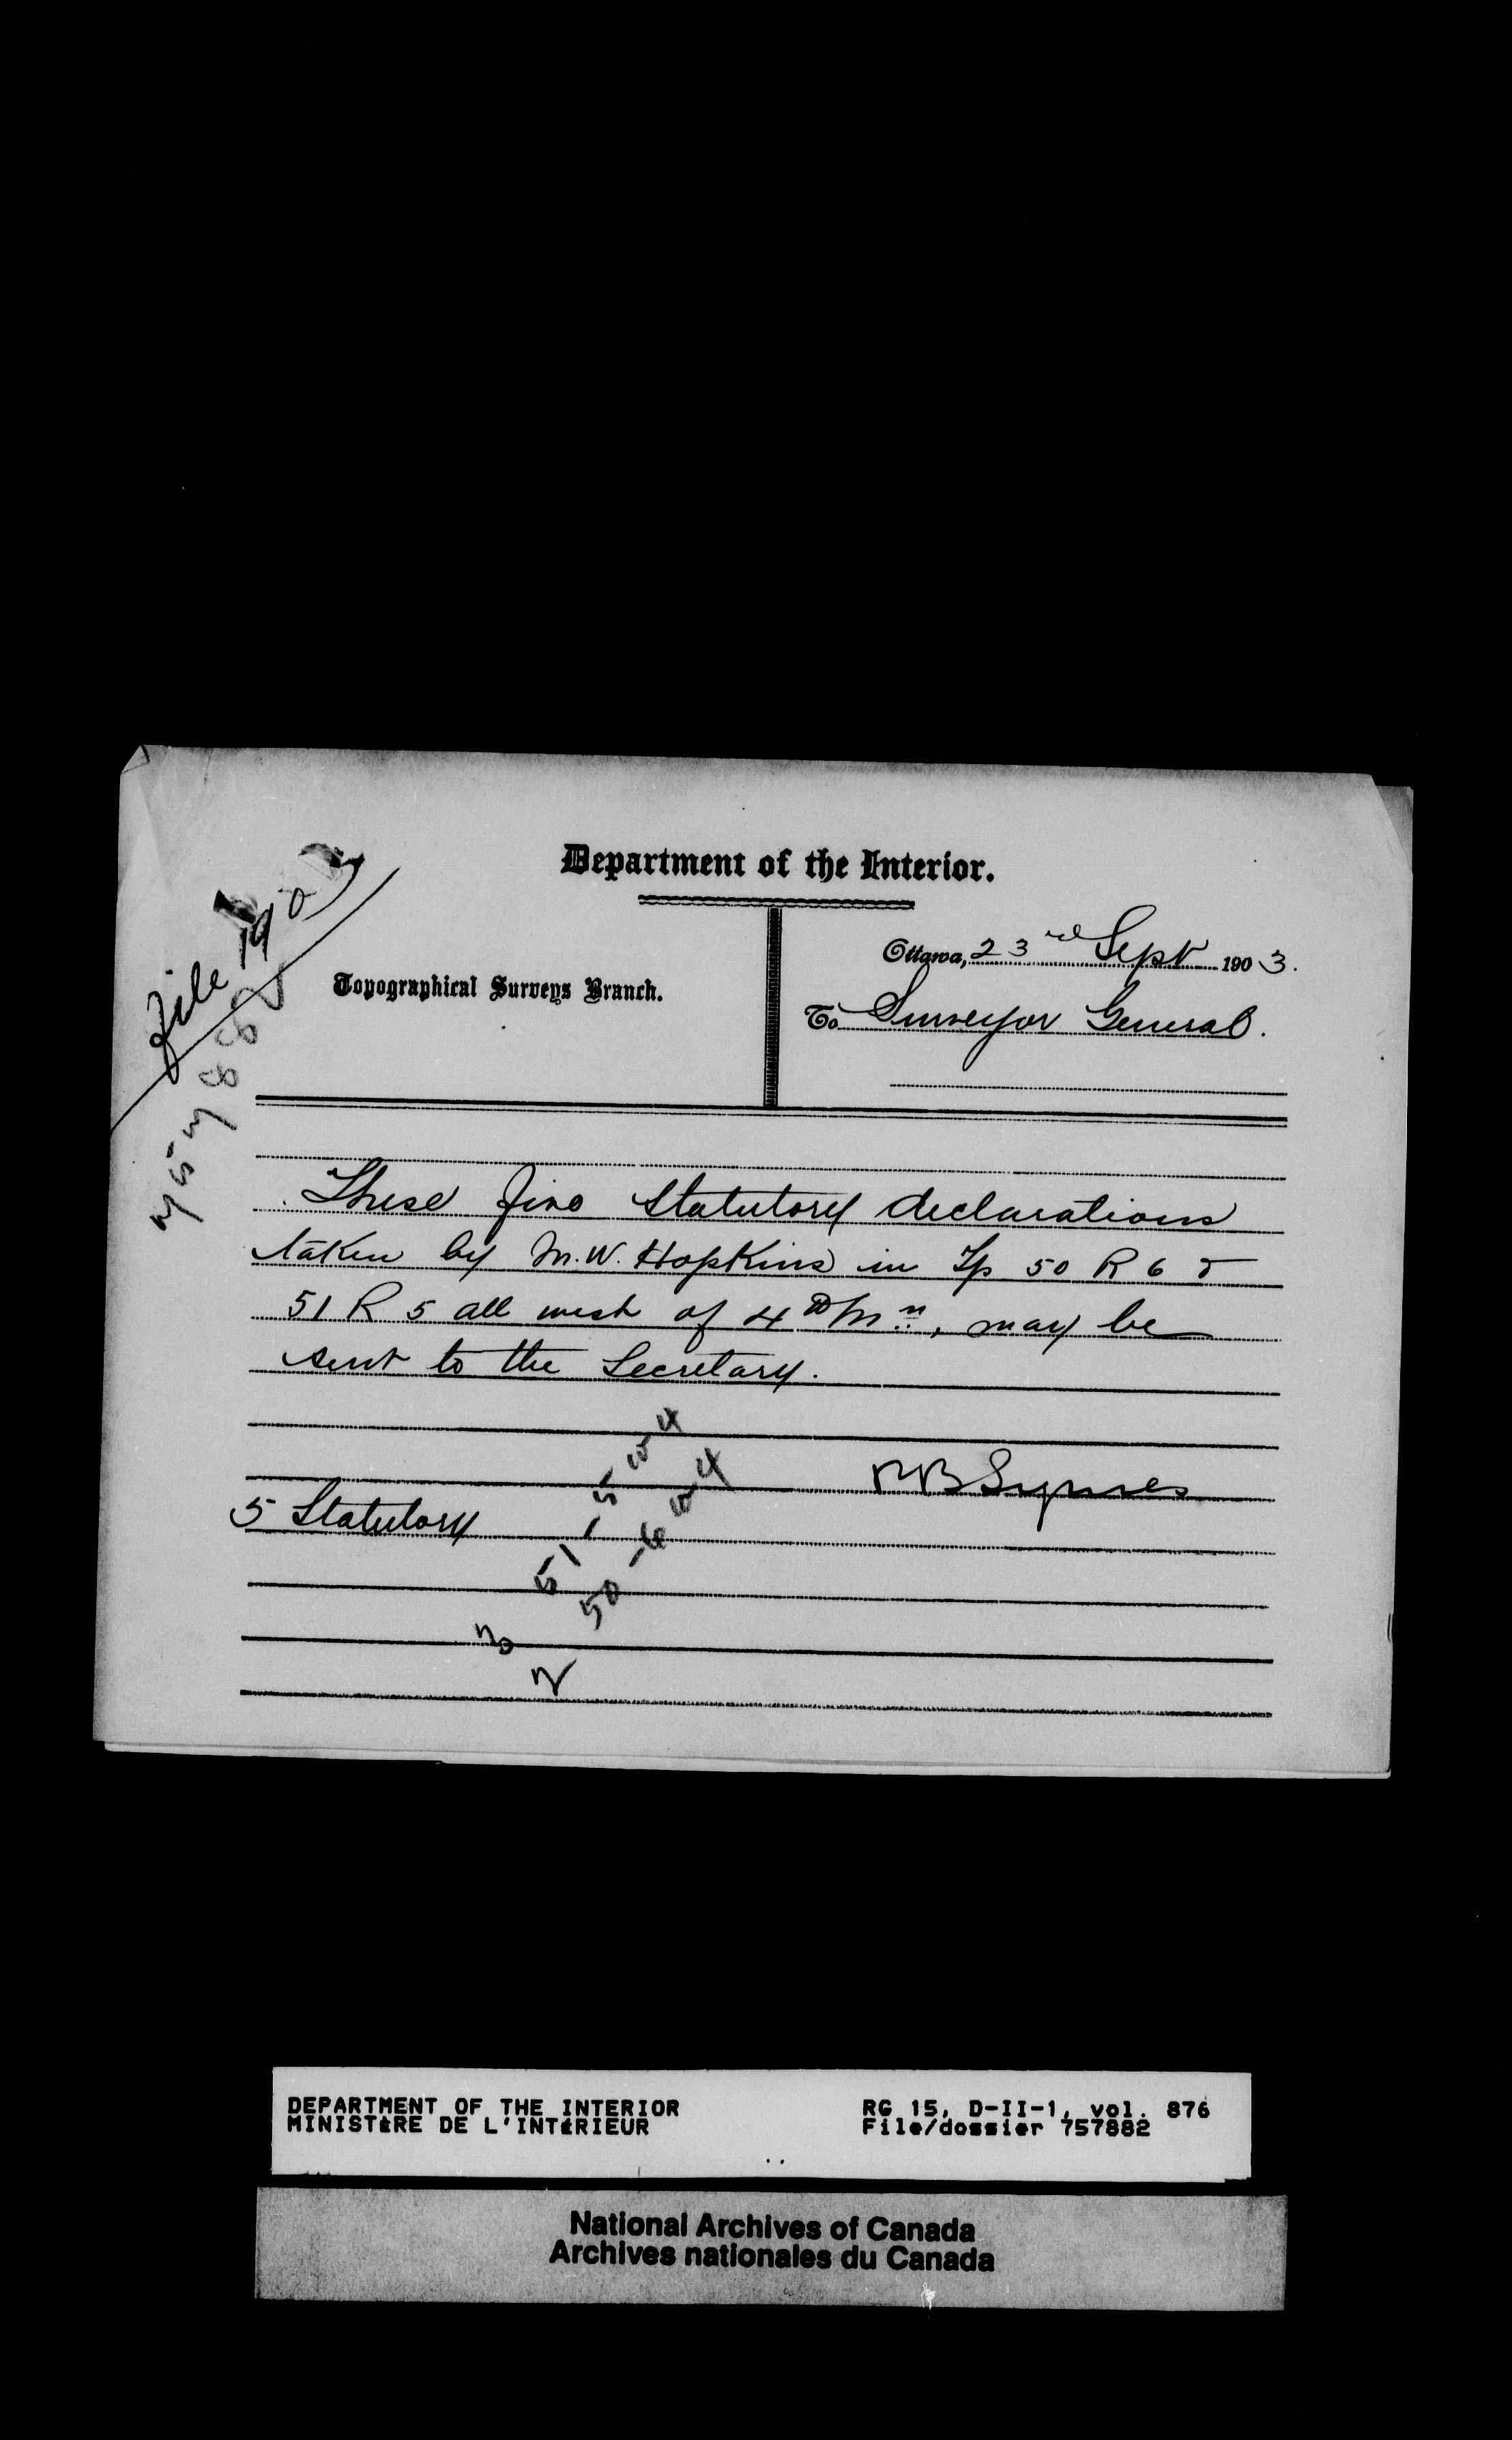 Department of the Interior.
Ottawa, 23rd Sept 1903.
Topographical Surveys Branch.
To Surveyor General.
File
757882
These five Statutory declarations
taken by M.W. Hopkins in Tp 50 R 6 &
51 R 5 all west of 4th Mn, may be
sent to the Secretary.
PB Symes
5 Statutory
3 51-5 W 4
2 50-6 W 4
DEPARTMENT OF THE INTERIOR
MINISTÈRE DE L'INTÉRIEUR
RG 15, D-II-1, vol. 876
File/dossier 757882
National Archives of Canada
Archives nationales du Canada